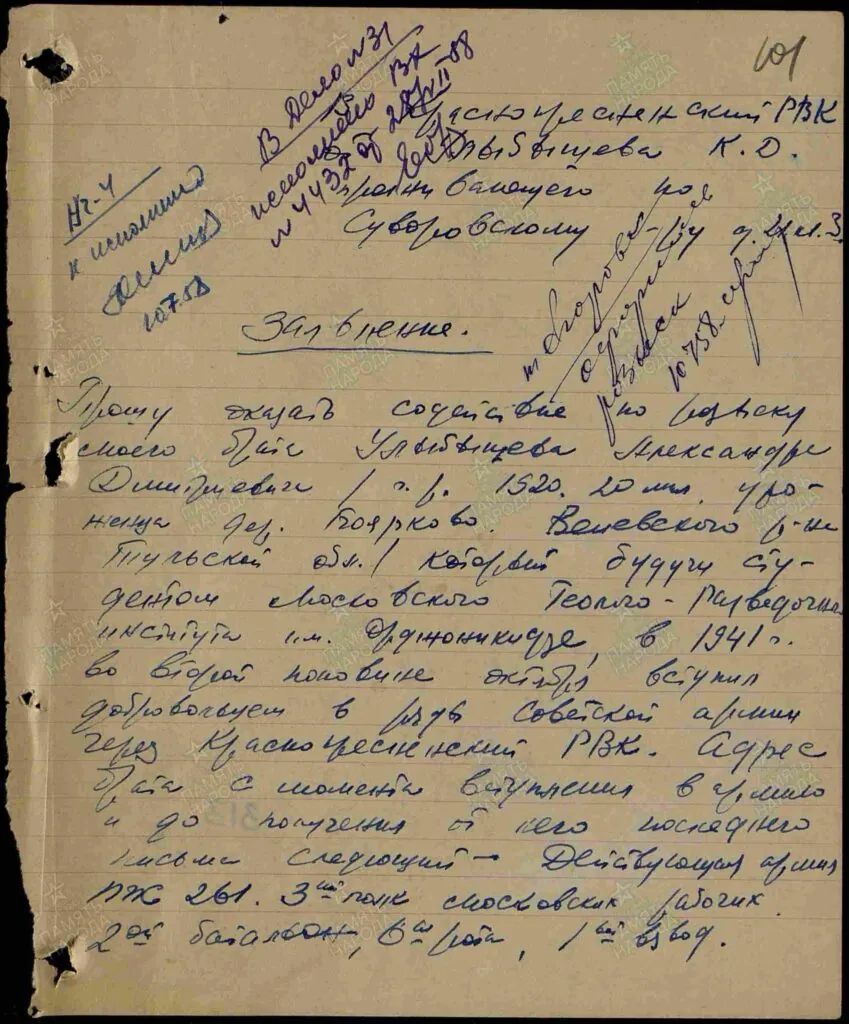 101
В Дело №31
исполнено ВА
№ 4432 от 28/VII-58
Краснопресненский РВК
от Улыбышева К. Д.
проживающего по
Суворовскому б-ру д. кв. 3.
Нг-4
к исполнению
10.7.58
т. Егоровой
розыск
10 7 58
Заявление.
Прошу оказать содействие по розыску
моего брата Улыбышева Александра
Дмитриевича / г. р. 1920. 20 мая, уро-
женца дер. Боярково. Веневского р-на
Тульской обл./ который будучи сту-
дентом Московского Геолого-Разведочного
института им. Орджоникидзе, в 1941 г.
во второй половине октября вступил
добровольцем в ряды Советской армии
через Краснопресненский РВК. Адрес
брата с момента вступления в армию
и до получения от него последнего
письма следующий — Действующая армия
ППС 261. 3ий полк московских рабочих
2ой батальон, 6ая рота, 1ый взвод.
ПАМЯТЬ НАРОДА